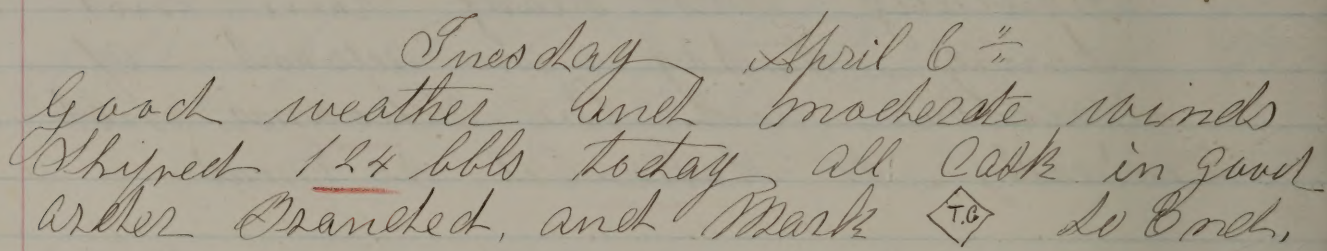 Tuesday April 6th
Good weather and moderate winds
Shiped 124 bbls today all Cask in good
order Branded, and Mark T.G. So End,